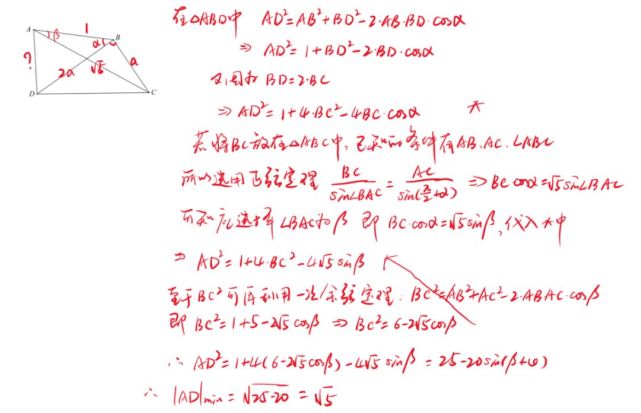 A 1 B
β α
? 2a √5 a
D C
在△ABD中 AD²=AB²+BD²-2·AB·BD·cosα
⇒ AD²=1+BD²-2·BD·cosα
又因为 BD=2·BC
⇒ AD²=1+4·BC²-4BC·cosα *
若将BC放在△ABC中,已知的条件有AB.AC.∠ABC
所以选用正弦定理 BC/sin∠BAC = AC/sin(π/2+α) ⇒ BC cosα=√5sin∠BAC
可知应选择∠BAC为β 即 BC·cosα=√5sinβ,代入*中
⇒ AD²=1+4·BC²-4√5sinβ
至于BC²可再利用一次余弦定理. BC²=AB²+AC²-2·AB·AC·cosβ
即 BC²=1+5-2√5cosβ ⇒ BC²=6-2√5cosβ
∴ AD²=1+4(6-2√5cosβ)-4√5sinβ = 25-20sin(β+φ)
∴ |AD|min = √25-20 = √5